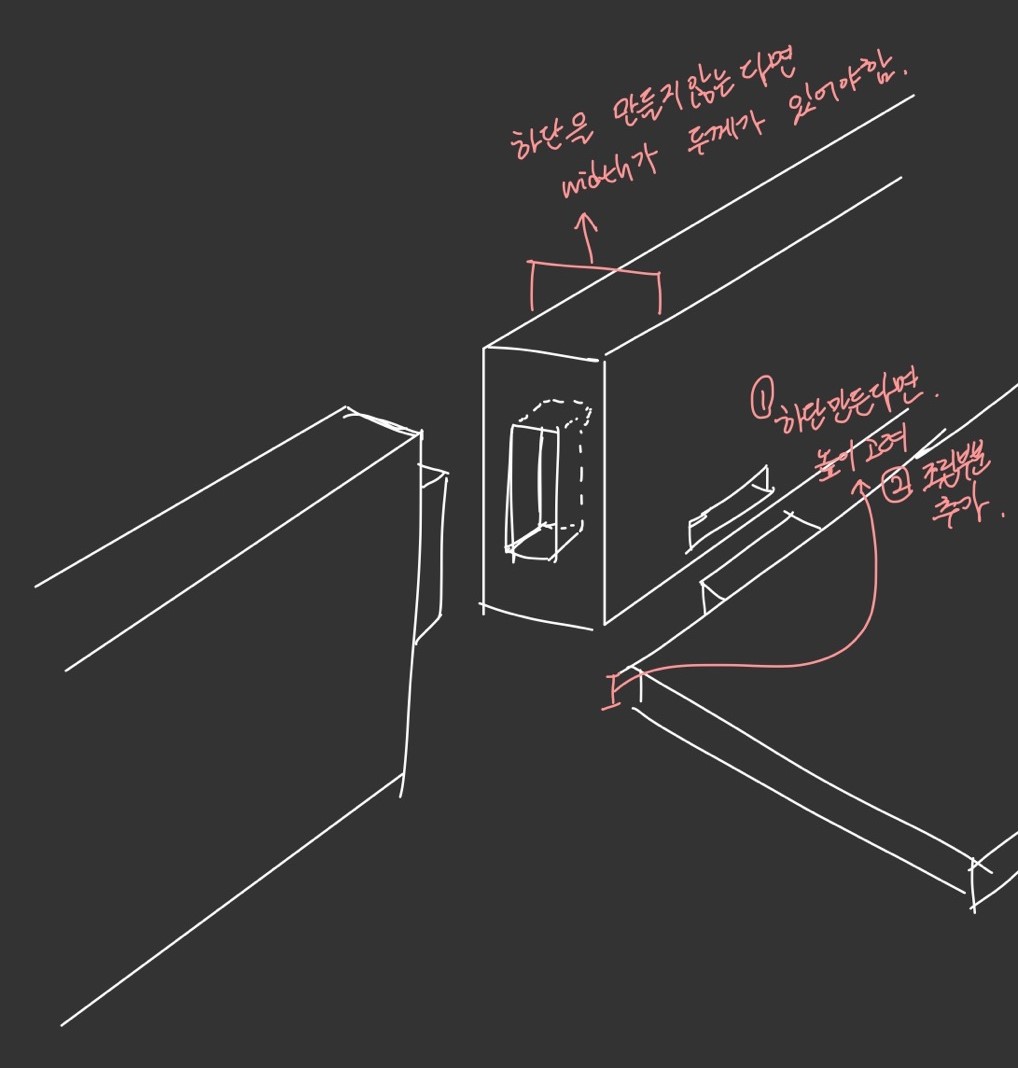 하단을 만들지않는다면
width가 두께가 있어야함.
① 하단만든다면.
높이 고려
② 조립부분
추가.